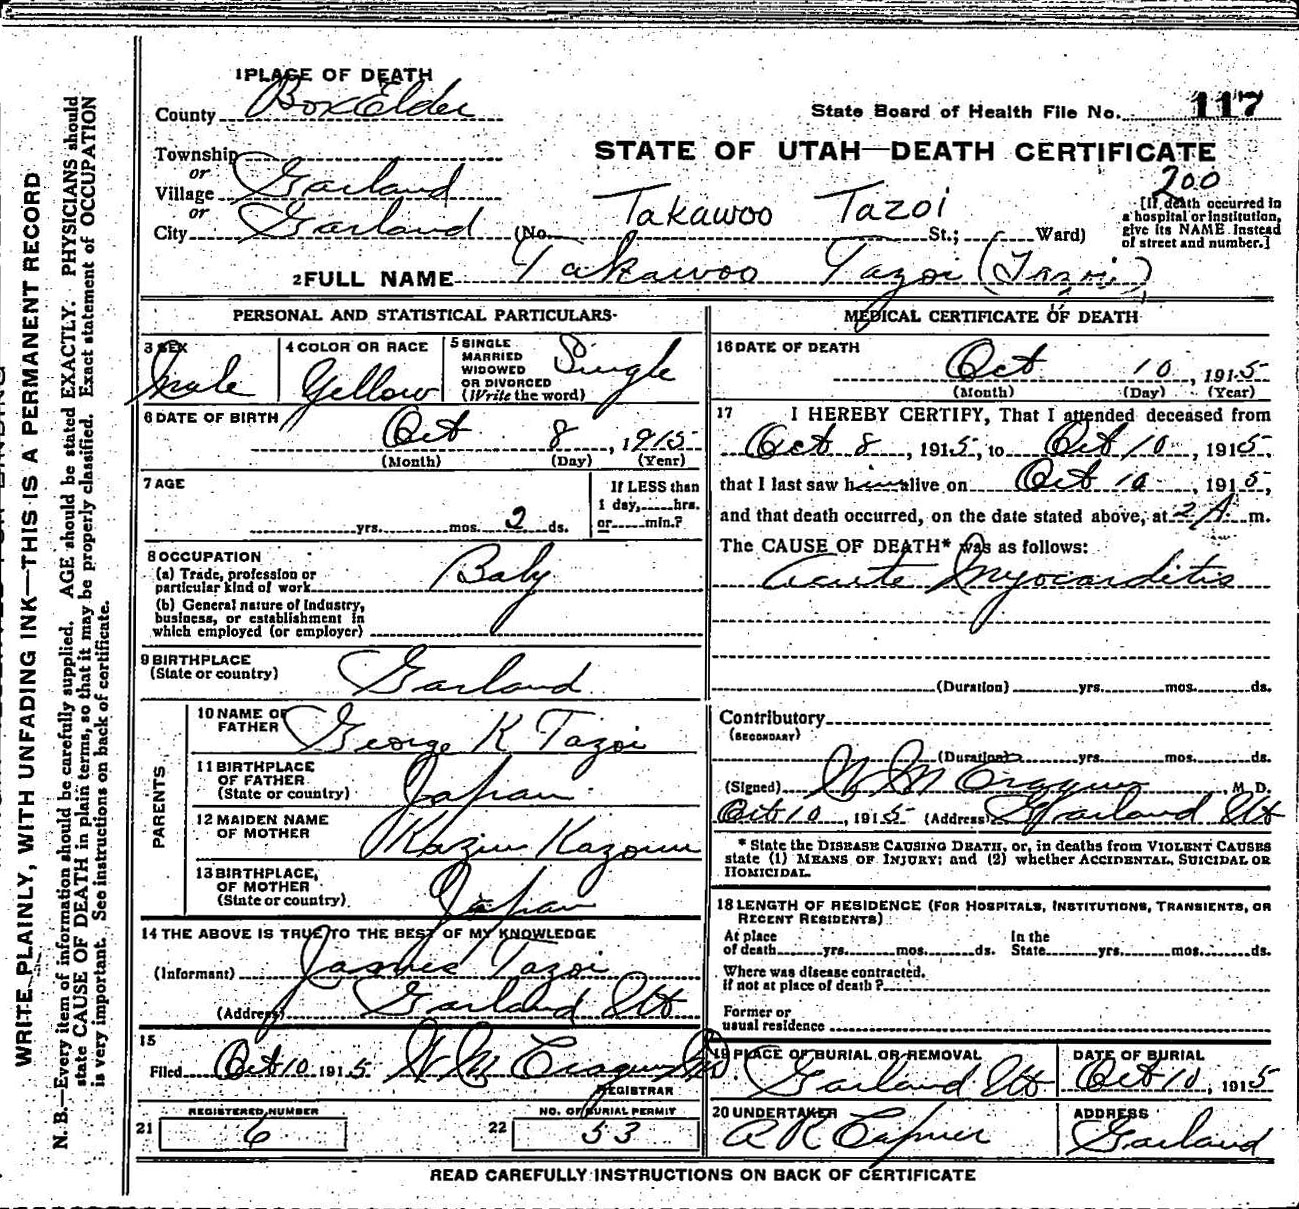 1 PLACE OF DEATH
County Box Elder
State Board of Health File No. 117
STATE OF UTAH—DEATH CERTIFICATE
200
Township
or
Village Garland
or
City Garland (No. Takawoo Tazoi St.; Ward)
[If death occurred in
a hospital or institution,
give its NAME instead
of street and number.]
2 FULL NAME Takawoo Tazoi (Tazoi)
PERSONAL AND STATISTICAL PARTICULARS
3 SEX
Male
4 COLOR OR RACE
Yellow
5 SINGLE
MARRIED
WIDOWED
OR DIVORCED
(Write the word)
Single
6 DATE OF BIRTH
Oct 8, 1915
(Month) (Day) (Year)
7 AGE
yrs. mos. 2 ds.
If LESS than
1 day, hrs.
or min.?
8 OCCUPATION
(a) Trade, profession or
particular kind of work Baby
(b) General nature of Industry,
business, or establishment in
which employed (or employer)
9 BIRTHPLACE
(State or country) Garland
PARENTS
10 NAME OF
FATHER George K Tazoi
11 BIRTHPLACE
OF FATHER
(State or country) Japan
12 MAIDEN NAME
OF MOTHER
13 BIRTHPLACE,
OF MOTHER
(State or country) Japan
14 THE ABOVE IS TRUE TO THE BEST OF MY KNOWLEDGE
(Informant) James Tazoi
(Address) Garland Ut
15
Filed Oct 10 1915 W M
REGISTRAR
REGISTERED NUMBER
21 6
NO. OF BURIAL PERMIT
22 53
MEDICAL CERTIFICATE OF DEATH
16 DATE OF DEATH
Oct 10, 1915
(Month) (Day) (Year)
17 I HEREBY CERTIFY, That I attended deceased from
Oct 8, 1915, to Oct 10, 1915,
that I last saw him alive on Oct 10, 1915,
and that death occurred, on the date stated above, at 2 A m.
The CAUSE OF DEATH* was as follows:
Acute Myocarditis
(Duration) yrs. mos. ds.
Contributory
(SECONDARY)
(Duration) yrs. mos. ds.
(Signed) W M M. D.
Oct 10, 1915 (Address) Garland Ut
* State the DISEASE CAUSING DEATH, or, in deaths from VIOLENT CAUSES
state (1) MEANS OF INJURY; and (2) whether ACCIDENTAL, SUICIDAL OR
HOMICIDAL.
18 LENGTH OF RESIDENCE (FOR HOSPITALS, INSTITUTIONS, TRANSIENTS, OR
RECENT RESIDENTS)
At place
of death yrs. mos. ds.
In the
State yrs. mos. ds.
Where was disease contracted,
if not at place of death?
Former or
usual residence
19 PLACE OF BURIAL OR REMOVAL
Garland Ut
DATE OF BURIAL
Oct 10, 1915
20 UNDERTAKER
A R
ADDRESS
Garland
READ CAREFULLY INSTRUCTIONS ON BACK OF CERTIFICATE
WRITE PLAINLY, WITH UNFADING INK—THIS IS A PERMANENT RECORD
N. B.—Every item of information should be carefully supplied. AGE should be stated EXACTLY. PHYSICIANS should
state CAUSE OF DEATH in plain terms, so that it may be properly classified. Exact statement of OCCUPATION
is very important. See instructions on back of certificate.